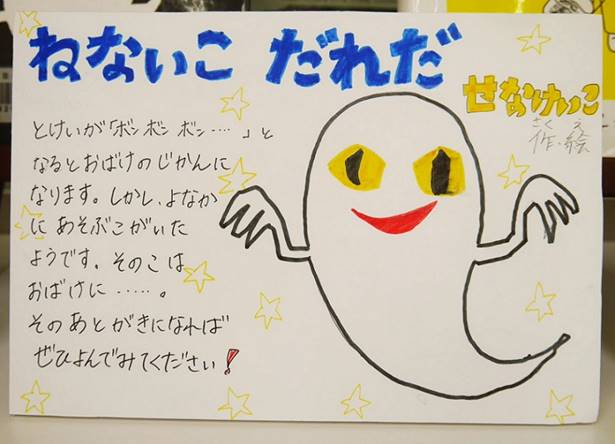 ねないこ だれだ
せなけいこ
さく え
作・絵
とけいが「ボン ボン ボン…‥」と
なるとおばけのじかんに
なります。しかし、よなか
に あそぶこがいた
ようです。そのこは
おばけに……。
そのあとがきになれば
ぜひよんでみてください!